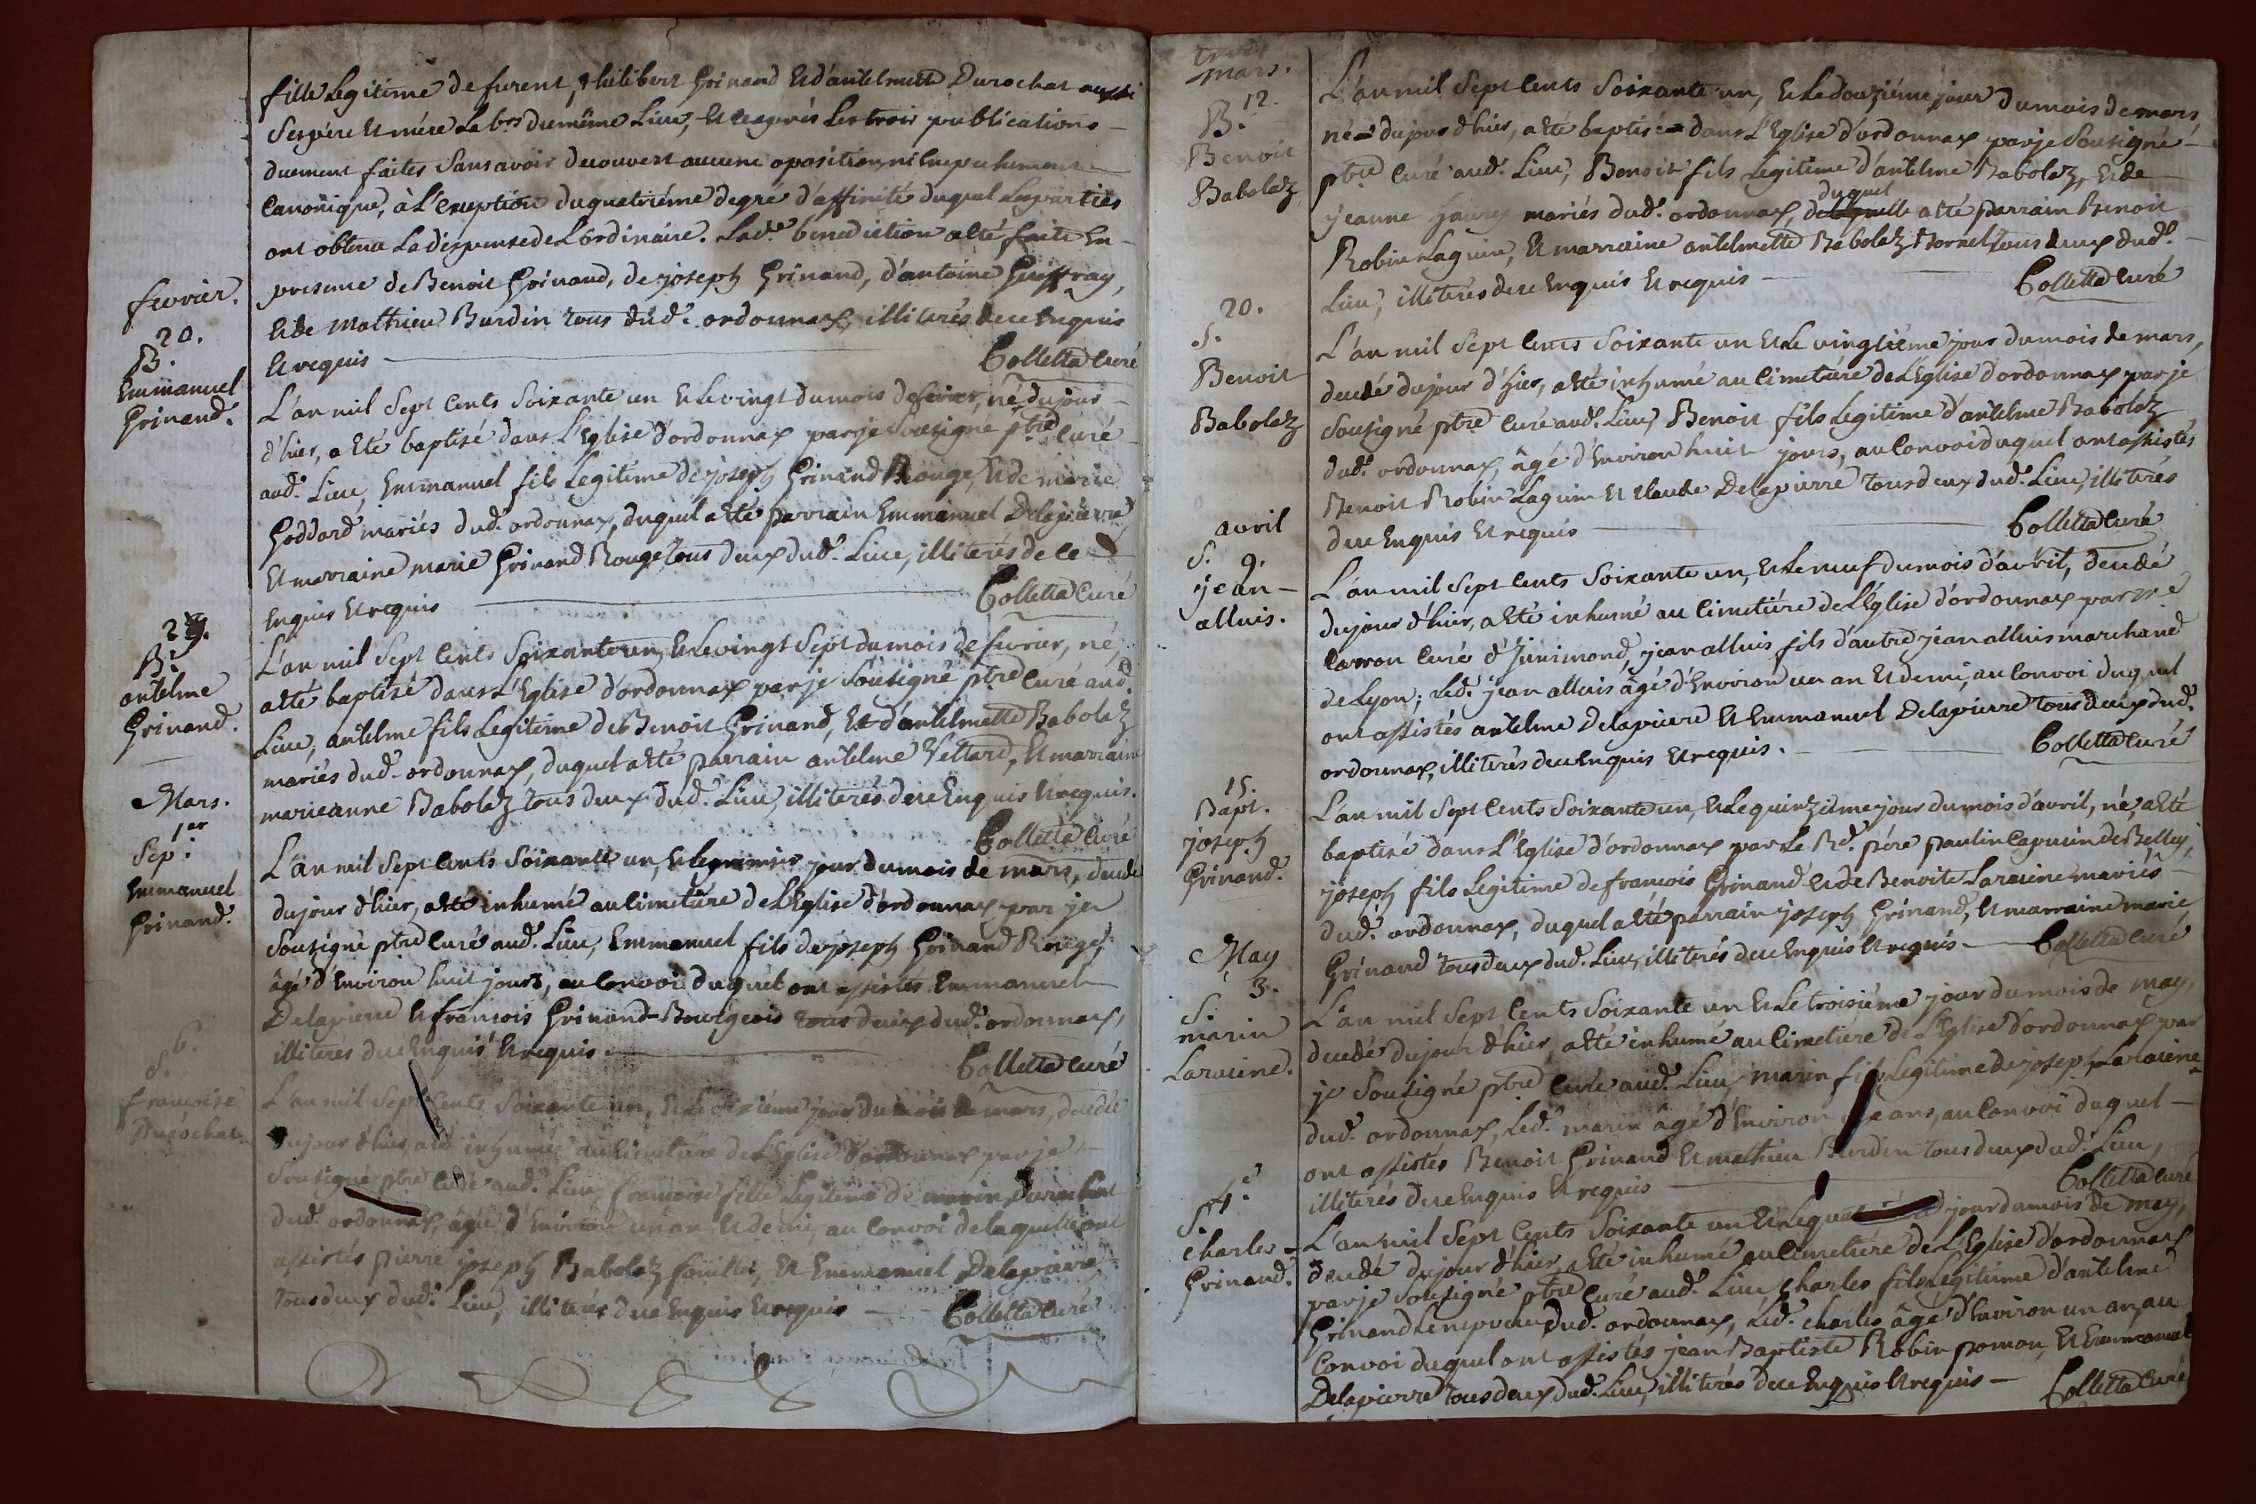 fille Legitime de furent philibert Grinand et d'antelmette Durochat aussi
Ses père et mère Lab.rs du même Lieu, et ce après Les trois publications
duement faites Sans avoir decouvert aucune oposition, ni Empechement
Canonique, à L'exeption du quatriéme degré d'affinité duquel Les parties
ont obtenu La dispense de L'ordinaire. Lad.e benediction a été faite En
presence de Benoit Grinand, de joseph Grinand, d'antoine Geuffray,
février.
et de Mathieu Burdin tous dud.t ordonnax, illiterés de ce Enquis
et requis Colletta Curé
20.
B.
Emmanuel
Grinand.
L'an mil Sept Cents Soixante un et Le vingt du mois de fevrier, né du jour
d'hier, a été baptisé dans L'Eglise d'ordonnax par je Sousigné ptre Curé
aud.t Lieu, Emmanuel fils Legitime de joseph Grinand Rouge, et de marie
Goddard mariés dud.t ordonnax, duquel a été parrain Emmanuel Delapierre
et marraine marie Grinand Rouge tous deux dud.t Lieu, illiterés de ce
Enquis et requis Colletta Curé
B.
antelme
Grinand.
L'an mil Sept Cents Soixante un, et Le vingt Sept du mois de fevrier, né,
a été baptisé dans L'Eglise d'ordonnax par je Sousigné ptre Curé aud.
Lieu, antelme fils Legitime de Benoit Grinand, et d'antelmette Babolaz
mariés dud.t ordonnax, duquel a été parrain antelme Vettard, et marraine
marieanne Babolaz tous deux dud.t Lieu, illiterés de ce Enquis et requis.
Colletta Curé
Mars.
1er
Sep.
Emmanuel
Grinand.
L'an mil Sept Cents Soixante un, et Le premier jour du mois de mars, decedé
du jour d'hier, a été inhumé au Cimetière de L'Eglise d'ordonnax par je
Sousigné ptre Curé aud.t Lieu, Emmanuel fils de joseph Grinand Rouge,
âgé d'Environ huit jours, au Convoi duquel ont assistés Emmanuel
Delapierre et françois Grinand-Bourgeois tous deux dud.t ordonnax,
illiterés de ce Enquis et requis. Colletta Curé
6.
S.
françoise
Durochat
L'an mil Sept Cents Soixante un, et Le Sixiéme jour du mois de mars, decedée
du jour d'hier, a été inhumée au Cimetière de L'Eglise d'ordonnax par je
Sousigné ptre Curé aud.t Lieu, françoise fille Legitime de marin Durochat
dud.t ordonnax, âgée d'Environ un an et demi, au Convoi de laquelle ont
assistés pierre joseph Babolaz fouiller, et Emmanuel Delapierre
tous deux dud.t Lieu, illiterés de ce Enquis et requis Colletta Curé
mars.
12.
B.
Benoit
Babolaz
L'an mil Sept Cents Soixante un, et Le douziéme jour du mois de mars
né du jour d'hier, a été baptisé dans L'Eglise d'ordonnax par je Sousigné
ptre Curé aud.t Lieu, Benoit fils Legitime d'antelme Babolaz, et de
jeanne mariés dud.t ordonnax, duquel a été parrain Benoit
Robin Laguin, et marraine antelmette Babolaz Bornet tous deux dud.t
Lieu, illiterés de ce Enquis et requis Colletta Curé
20.
S.
Benoit
Babolaz
L'an mil Sept Cents Soixante un et Le vingtiéme jour du mois de mars,
decedé du jour d'hier, a été inhumé au Cimetière de L'Eglise d'ordonnax par je
Sousigné ptre Curé aud.t Lieu, Benoit fils Legitime d'antelme Babolaz
dud.t ordonnax, âgé d'Environ huit jours, au Convoi duquel ont assistés
Benoit Robin Laguin et Claude Delapierre tous deux dud.t Lieu, illiterés
de ce Enquis et requis Colletta Curé
avril
S. 9.
jean
alluis.
L'an mil Sept Cents Soixante un, et Le neuf du mois d'avril, decedé
du jour d'hier, a été inhumé au Cimetière de L'Eglise d'ordonnax par m.e
Carron Curé d'Jnnimond, jean alluis fils d'autre jean alluis marchand
de Lyon; Led.t jean alluis âgé d'Environ un an et demi, au Convoi duquel
ont assistés antelme Delapierre et Emmanuel Delapierre tous deux dud.t
ordonnax, illiterés de ce Enquis et requis. Colletta Curé
15.
Bapt.
joseph
Grinand.
L'an mil Sept Cents Soixante un, et Le quinziéme jour du mois d'avril, né, a été
baptisé dans L'Eglise d'ordonnax par Le Rd. pére paulin Capucin de Belley,
joseph fils Legitime de françois Grinand et de Benoite Laraine mariés
dud.t ordonnax, duquel a été parrain joseph Grinand, et marraine marie
Grinand tous deux dud.t Lieu, illiterés de ce Enquis et requis Colletta Curé
May
3.
S.
marin
Laraine.
L'an mil Sept Cents Soixante un et Le troisiéme jour du mois de may,
decedé du jour d'hier, a été inhumé au Cimetiere de L'Eglise d'ordonnax par
je Sousigné ptre Curé aud.t Lieu, marin fils Legitime de joseph Laraine
dud.t ordonnax, Led.t marin âgé d'Environ ans, au Convoi duquel
ont assistés Benoit Grinand et mathieu Burdin tous deux dud.t Lieu,
illiterés de ce Enquis et requis Colletta Curé
4.e
S.
Charles
Grinand.
L'an mil Sept Cents Soixante un et Le jour du mois de may,
decedé du jour d'hier, a été inhumé au Cimetiere de L'Eglise d'ordonnax
par je Sousigné ptre Curé aud.t Lieu, Charles fils Legitime d'antelme
Grinand Leneveu dud.t ordonnax, Led.t Charles âgé d'Environ un an, au
Convoi duquel ont assistés jean Baptiste Robin ponson, et Emmanuel
Delapierre tous deux dud.t Lieu, illiterés de ce Enquis et requis Colletta Curé